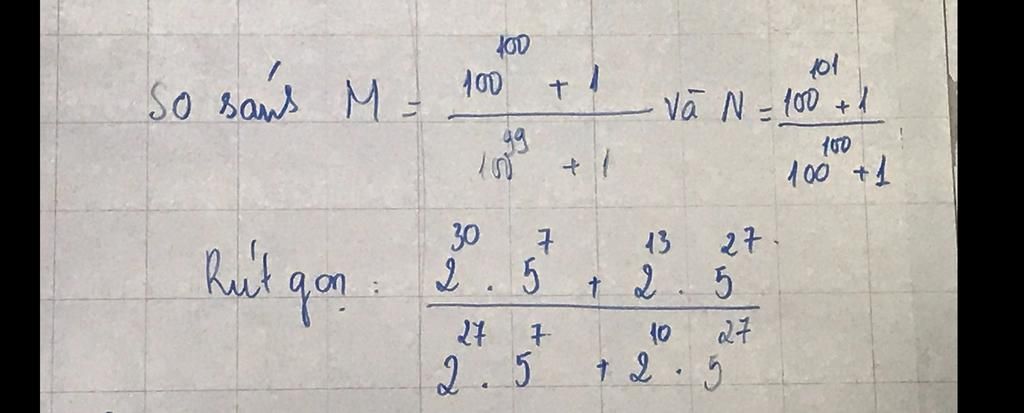 So sánh M = \frac{100^{100} + 1}{100^{99} + 1} và N = \frac{100^{101} + 1}{100^{100} + 1}
Rút gọn : \frac{2^{30} . 5^{7} + 2^{13} . 5^{27}}{2^{27} . 5^{7} + 2^{10} . 5^{27}}